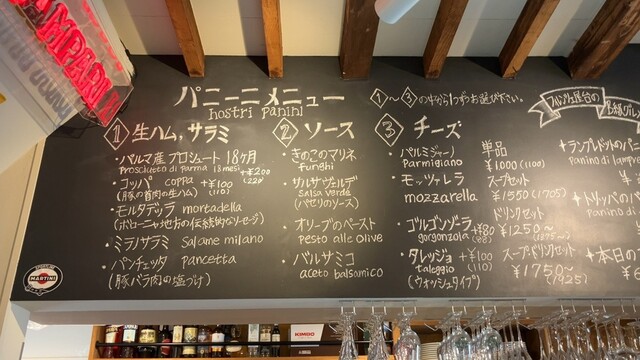 CAMPARI
パニーニメニュー
nostri panini
①~③の中から1つずつお選び下さい。
1 生ハム, サラミ
・パルマ産プロシュート 18ヶ月
Prosciutto di Parma 18mesi +¥200
・コッパ coppa +¥100
(豚の首肉の生ハム) (110)
・モルタデッラ mortadella
(ボローニャ地方の伝統的なソーセージ)
・ミラノサラミ salame milano
・パンチェッタ pancetta
(豚バラ肉の塩づけ)
2 ソース
・きのこのマリネ
funghi
・サルサヴェルデ
salsa verde
(パセリのソース)
・オリーブのペースト
pesto alle olive
・バルサミコ
aceto balsamico
3 チーズ
・パルミジャーノ
Parmigiano
・モッツァレラ
mozzarella
・ゴルゴンゾーラ +80
gorgonzola (88)
・タレッジョ +¥100
taleggio (110)
(ウォッシュタイプ)
単品
¥1,000 (1100)
スープセット
¥1550 (1705)
ドリンクセット
¥1250~
スープ・ドリンクセット
¥1750~
(1925)
フィレンツェ屋台の
+ランプレドットのパニ
Panino di lampre
+トリッパのパ
Panino di
+本日の
MARTINI
KIMBO